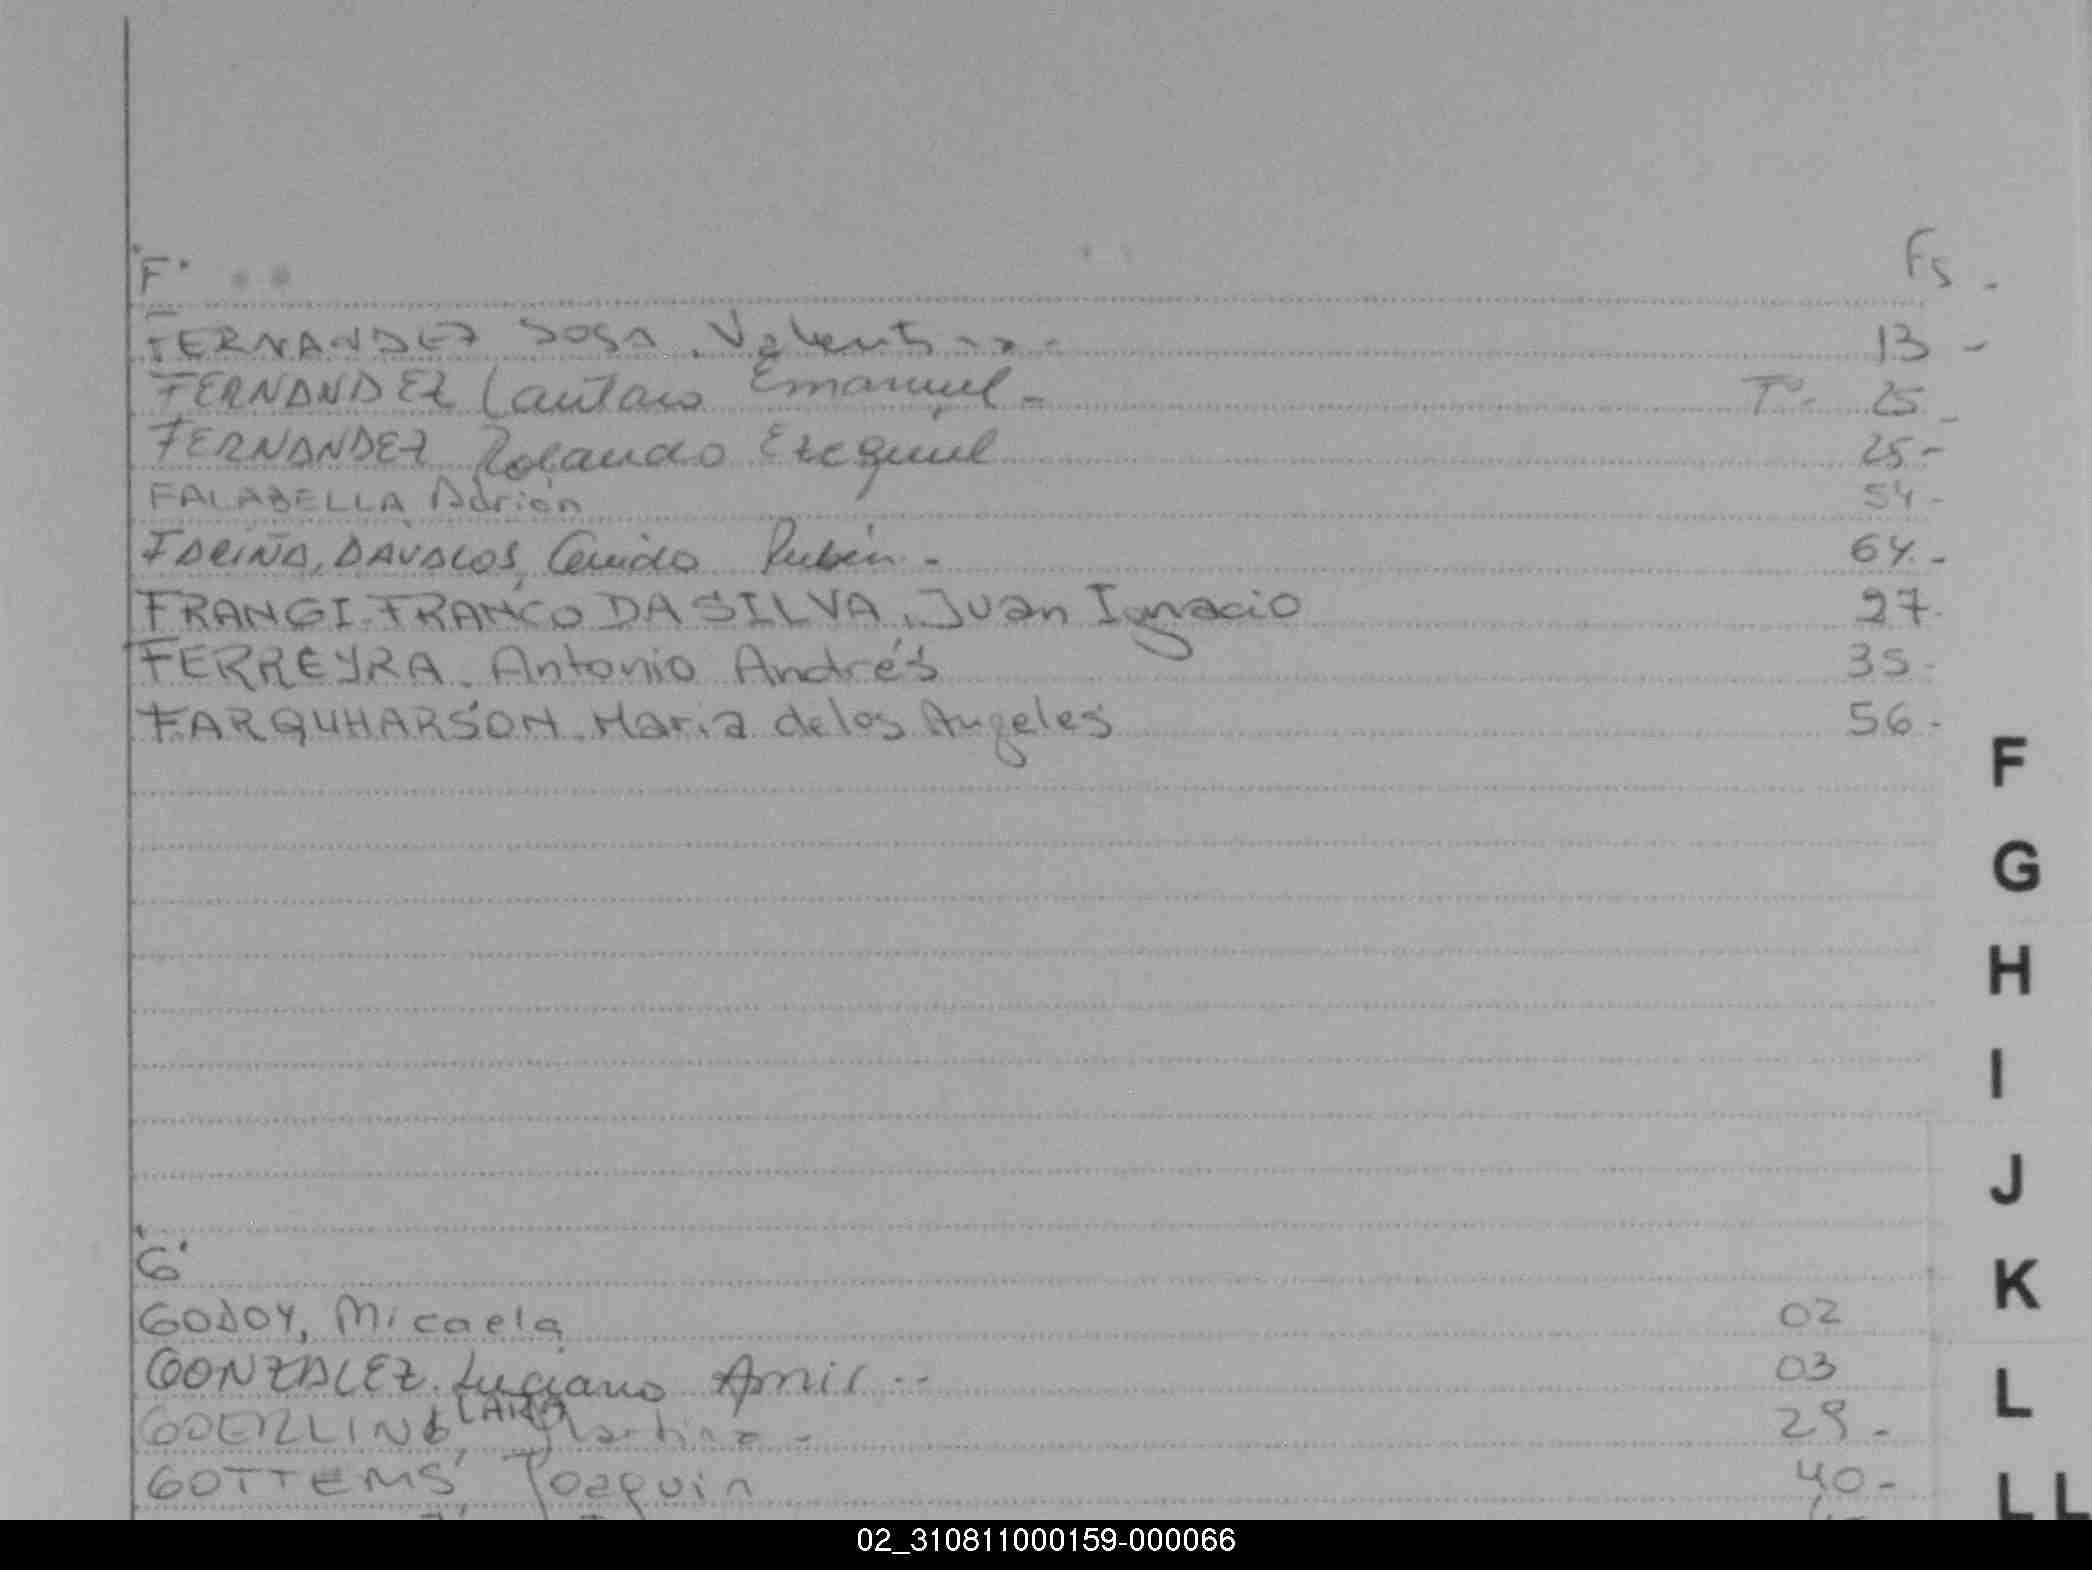 "F" Fs -
FERNANDEZ SOSA, Valentina - 13 -
FERNANDEZ Lautaro Emanuel - Tº- 25 -
FERNANDEZ Rolando Ezequiel 25 -
FALABELLA Adrián 54 -
FARIÑA, DAVALOS, Guido Rubén - 64 -
FRANGI-FRANCO DA SILVA, Juan Ignacio 27.
FERREYRA, Antonio Andrés 35 -
FARQUHARSON, Maria de los Angeles 56 -
F
G
H
I
J
"G"
K
GODOY, Micaela 02
GONZALEZ, Luciano Amir -- 03
L
GOERLING, LARA Martina - 29 -
GOTTEMS, Joaquin 40 -
LL
02_310811000159-000066